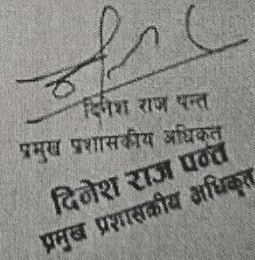 दिनेश राज पन्त
प्रमुख प्रशासकीय अधिकृत
दिनेश राज पन्त
प्रमुख प्रशासकीय अधिकृत